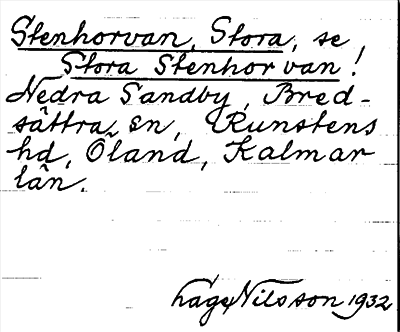 Stenhorvan, Stora, se
Stora Stenhorvan!
Nedra Sandby, Bred-
sättra sn, Runstens
hd, Öland, Kalmar
län.
Hage Nilsson 1932